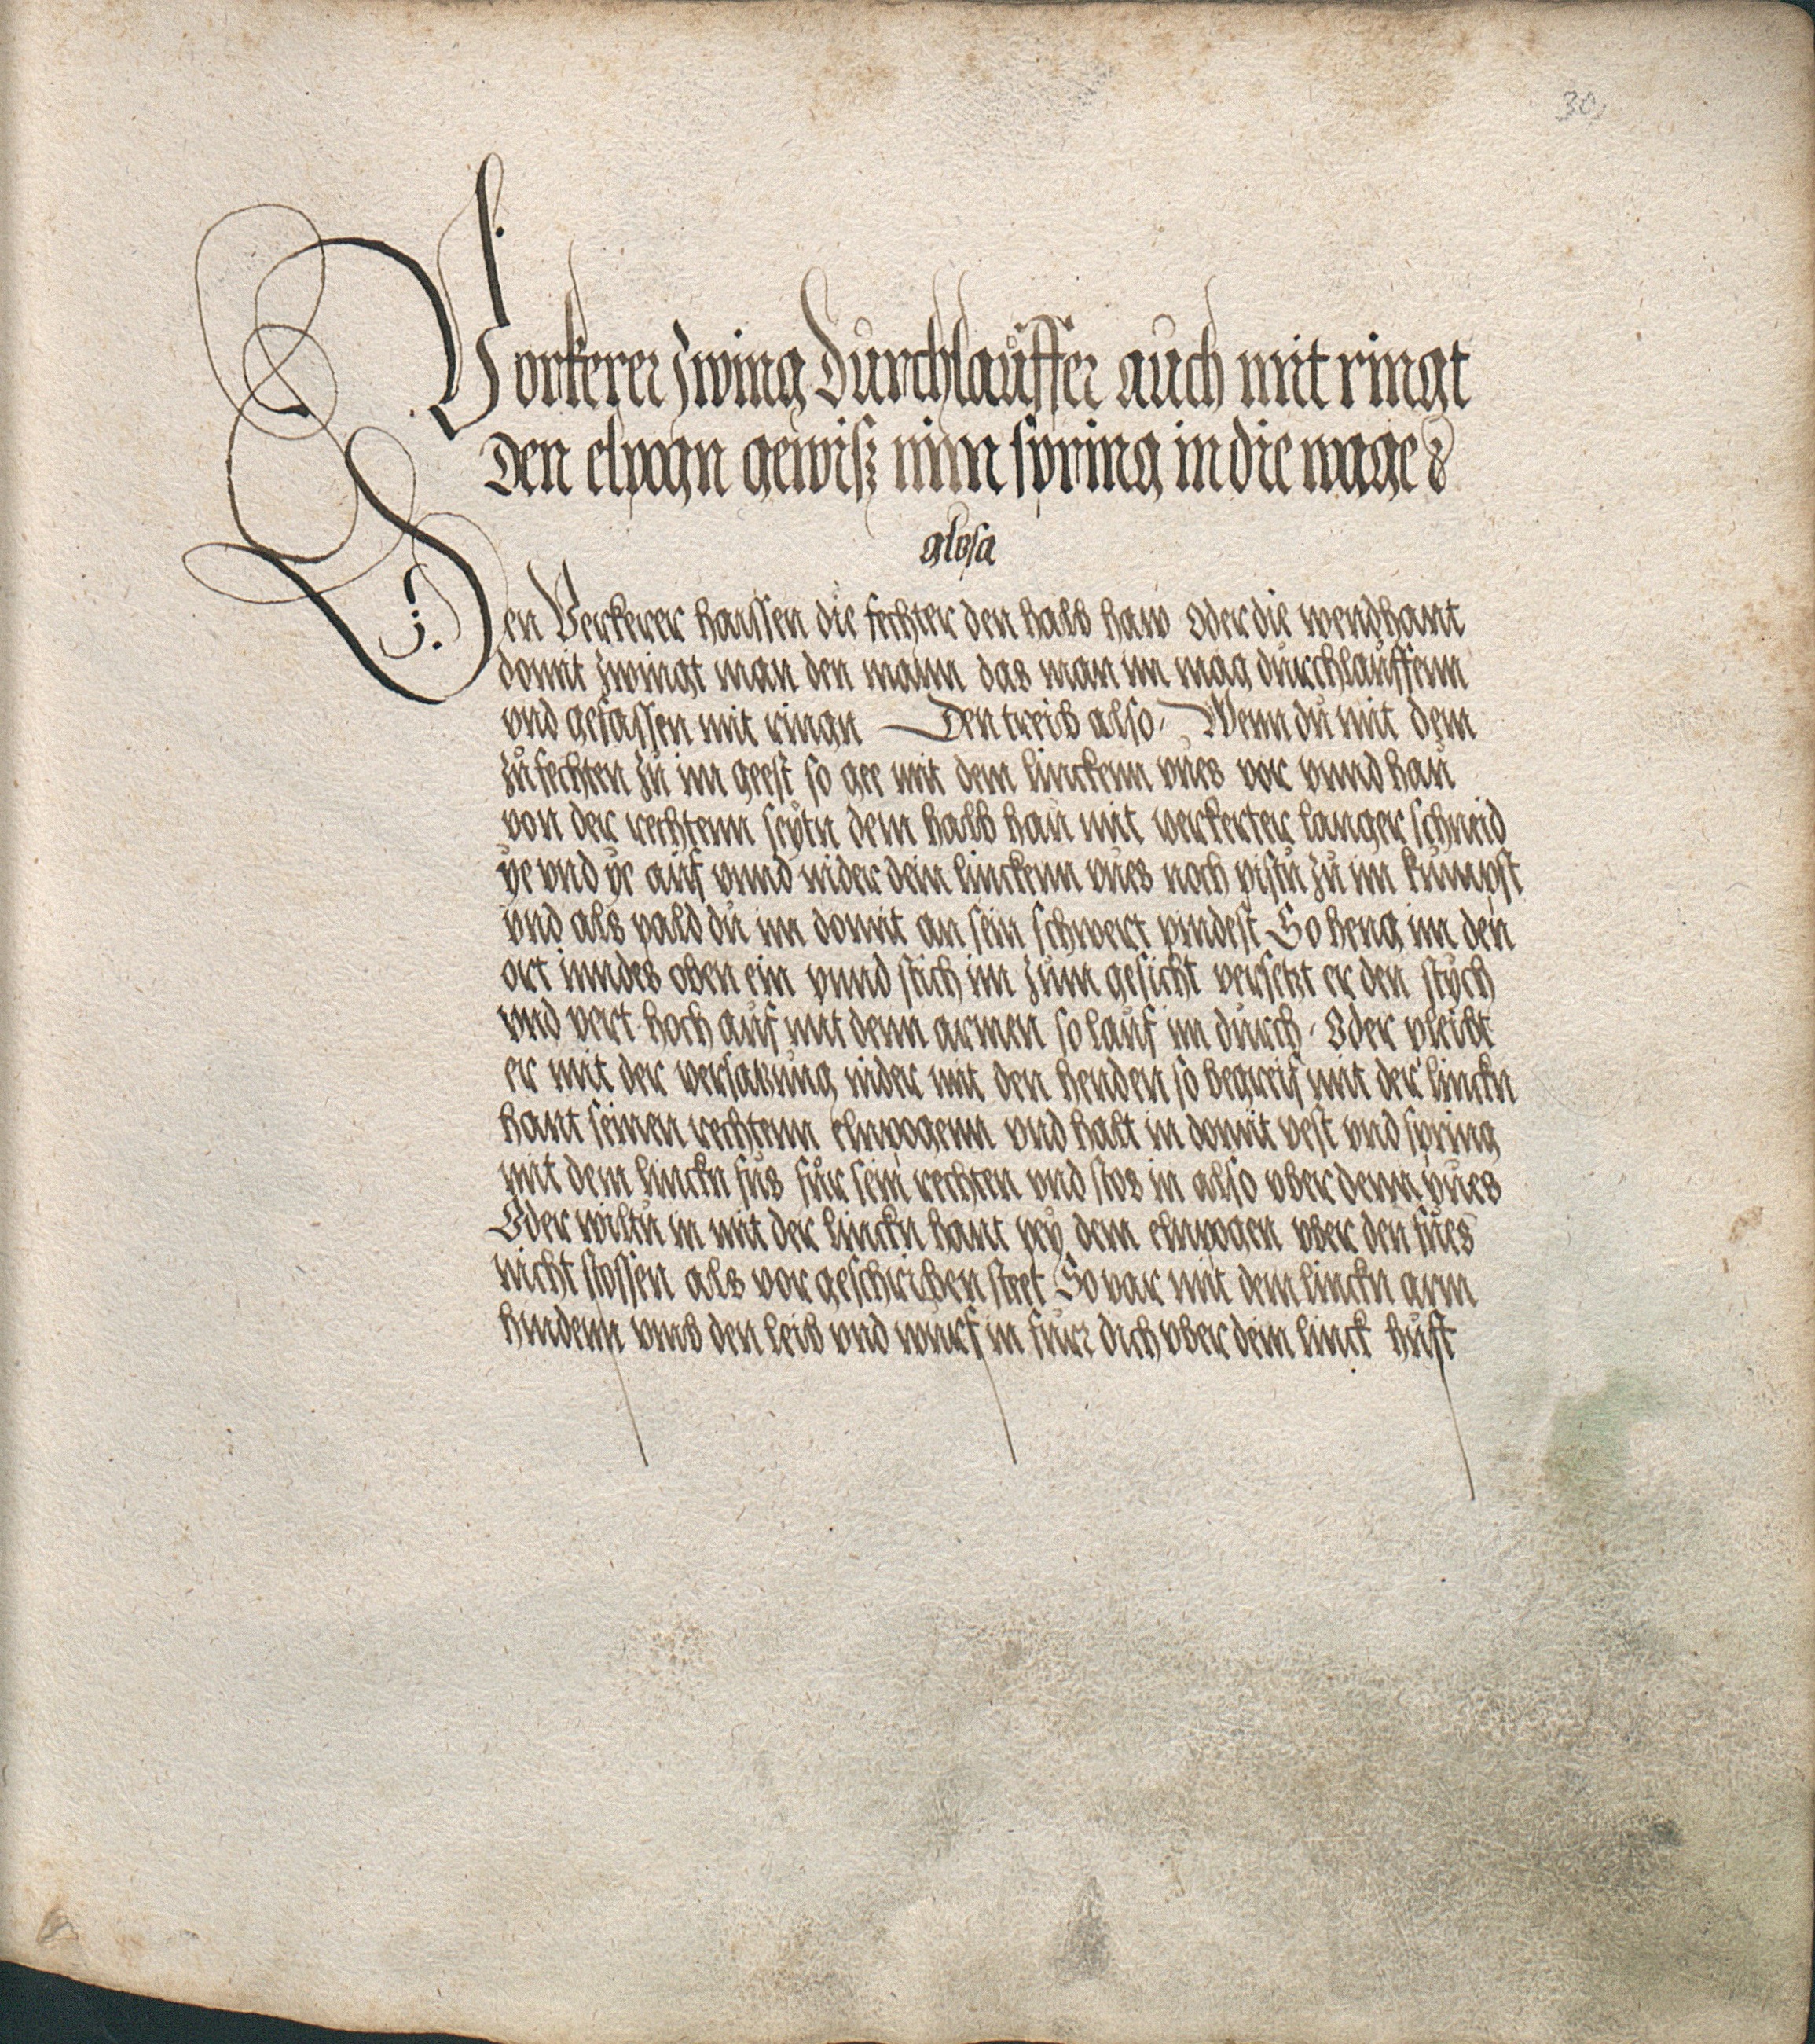 30
Vorkerer zwing durchlauffer auch mit ringt
den elpogn gewiß nim spring in die wage
glosa
Den Verkerer haissen die fechter den halb haw oder die wendhant
domit zwingt man den mann das man im mag durchlauffenn
vnd gefassen mit ringn Den treib also Wenn du mit dem
zufechten zu im geest so gee mit dem linckenn vues vor vnnd hau
von der rechtenn seytn dem halb hau mit verkerter langer schneid
ye vnd ye auf vnnd nider dein linckenn vues noch pistu zu im kumpst
vnd als pald du im domit an sein schwert pindest So heng im den
ort inndes oben ein vnnd stich im zum gesicht versetzt er den stych
vnd vert hoch auf mit denn armen so lauf im durch Oder pleibt
er mit der versatzung nider mit den henden so begreif mit der linckn
hant seinen rechtenn elnpogenn vnd halt in domit vest vnd spring
mit dem linckn fus für sein rechten vnd stos in also vber denn vues
Oder wiltu in mit der linckn hant pey dem elnpogen vber den fues
nicht stossen als vor geschriben steet So var mit dem linckn arm
hindenn vmb den leib vnd würf in fur dich vber dein linck huft